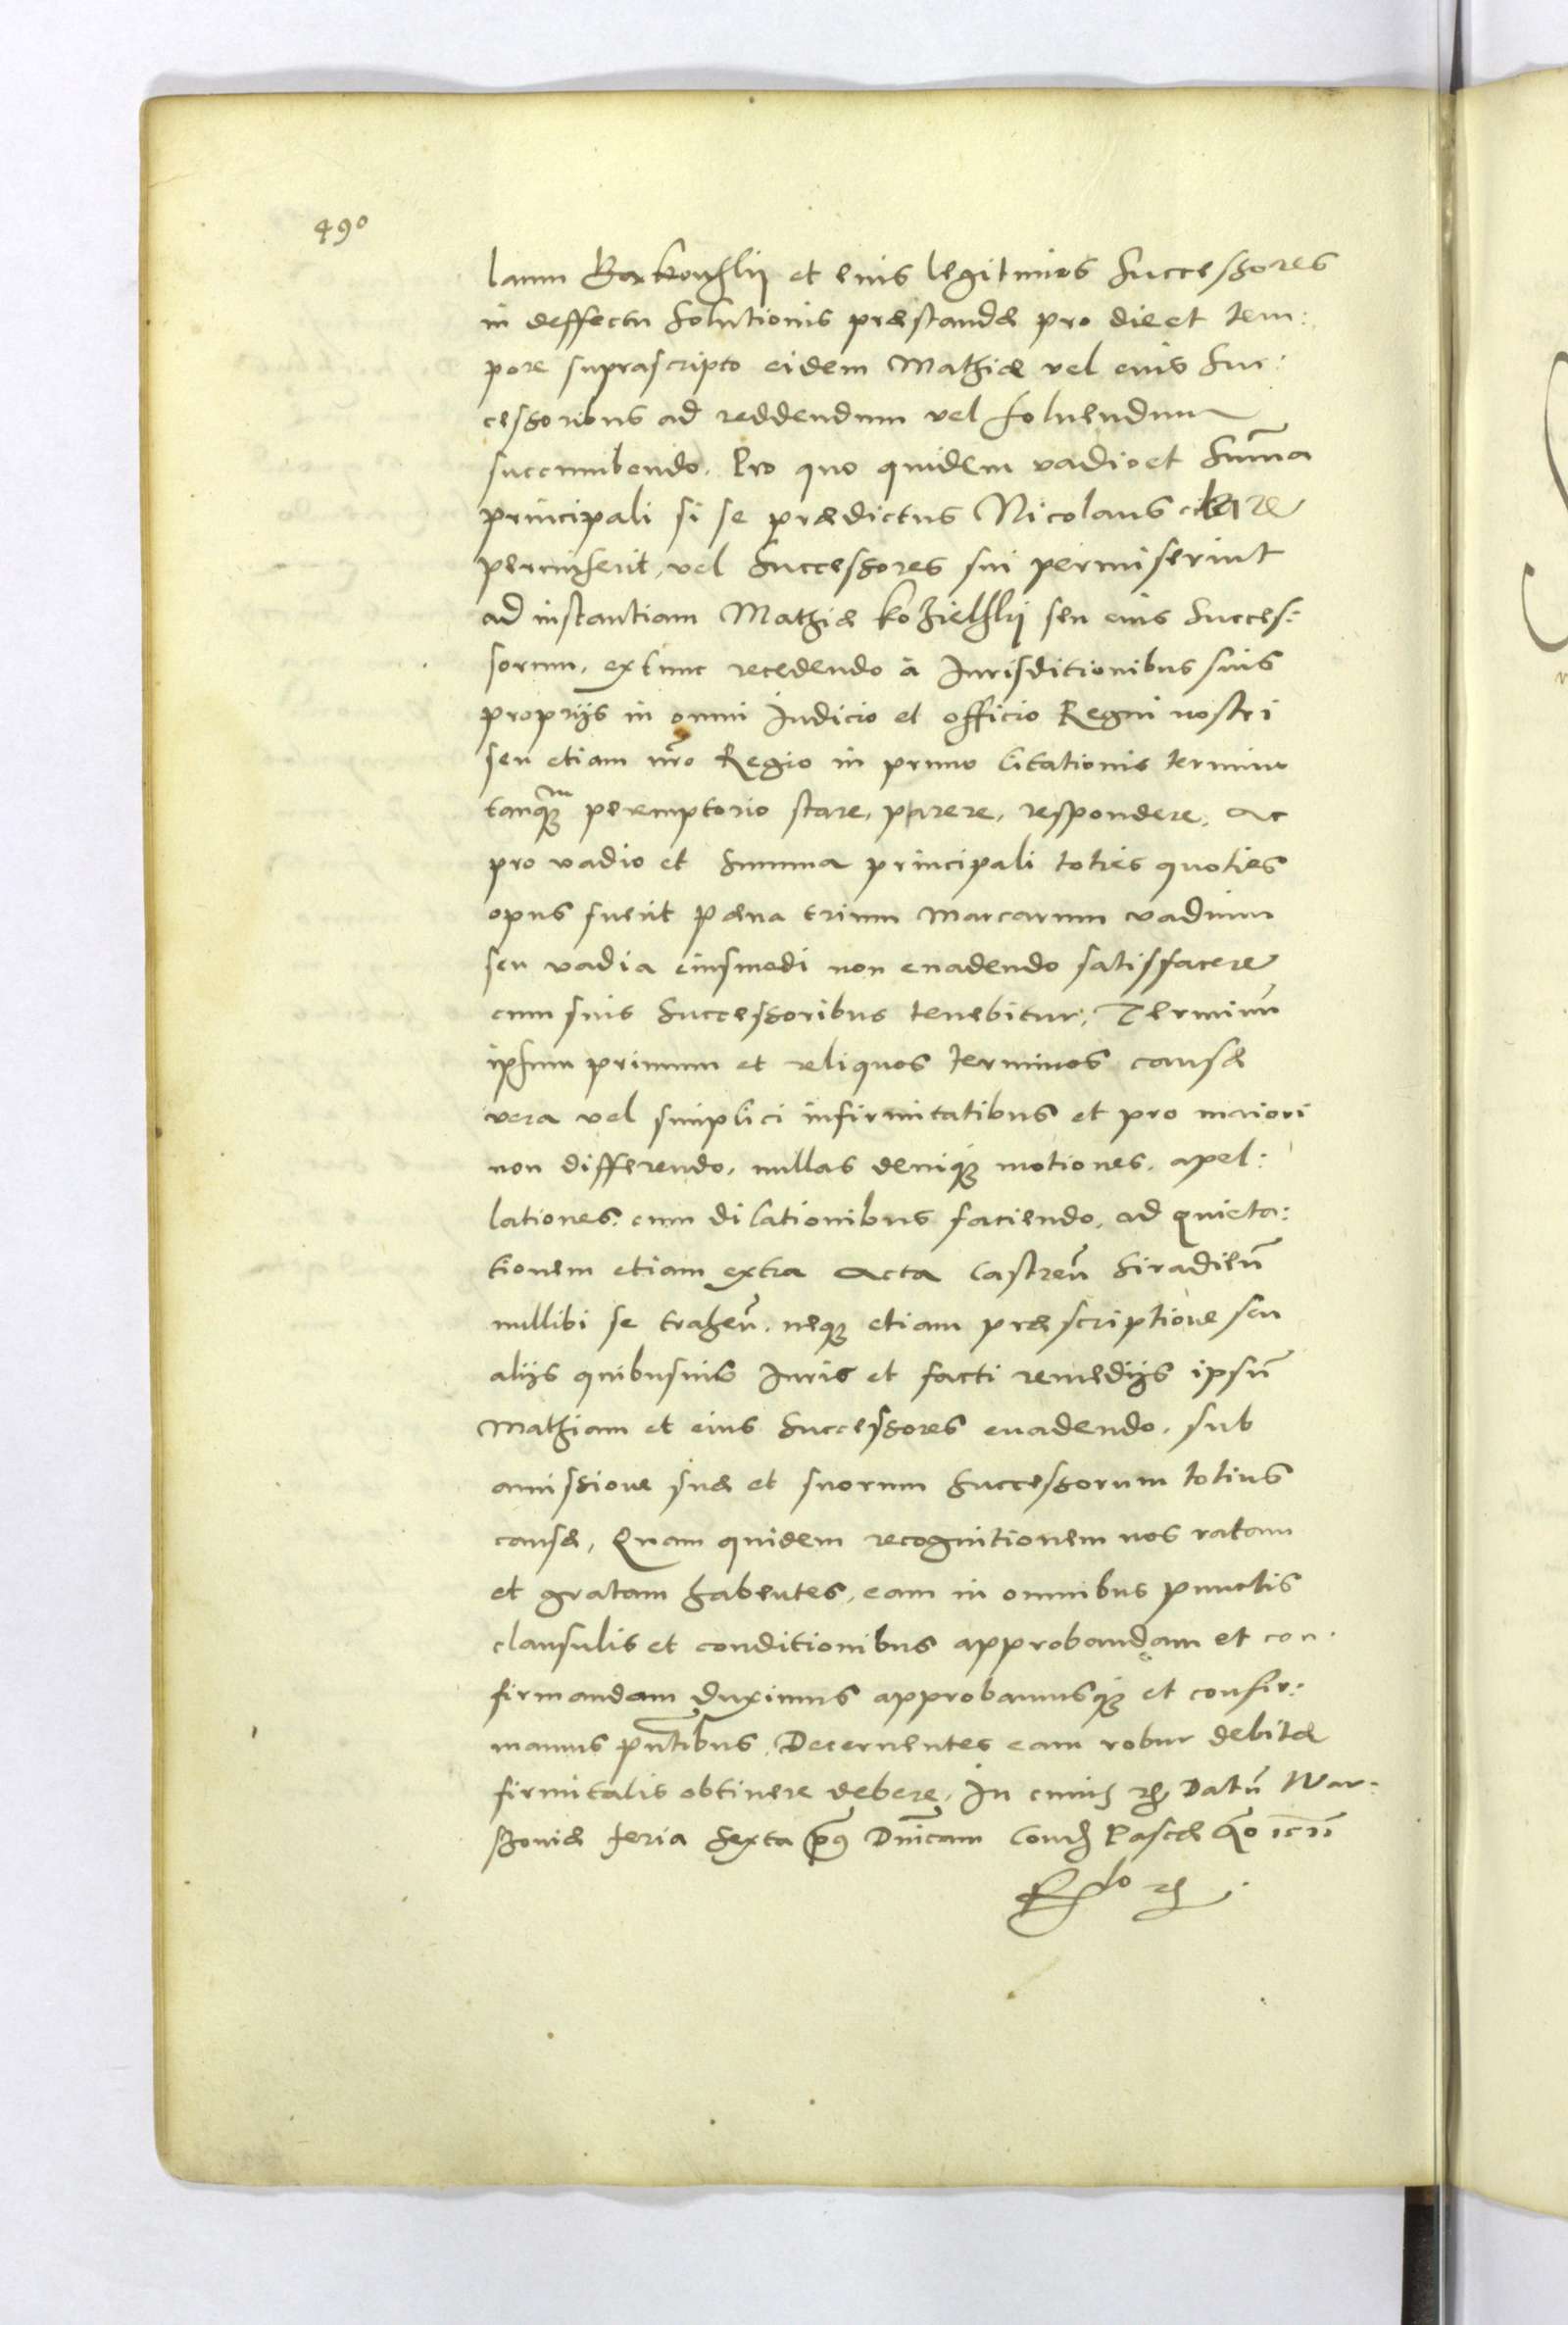 490
laum Borkowskÿ et eius legitimos Successores
in deffectu Solutionis præstandæ pro die et tem:
pore suprascripto eidem Mathiæ vel eius Suc:
cessoribus ad reddendum vel soluendum
succumbendo. Pro quo quidem vadio et Sum̃a
principali si se prædictus Nicolaus citare
permiserit, vel Successores sui permiserint
ad instantiam Mathiæ Kozielskÿ seu eius Succes:
sorum, extunc recedendo à Jurisditionibus suis
proprijs in omni Judicio et officio Regni nostri
seu etiam nr̃o Regio in primo Citationis termino
tanq̃ꝫ peremptorio stare, parere, respondere, Ac
pro vadio et Summa principali toties quoties
opus fuerit pæna trium Marcarum vadium
seu vadia eiusmodi non euadendo satisfacere
cum suis Successoribus tenebitur, Terminũ
ipsum primum et reliquos terminos causa
vera vel simplici infirmitatibus et pro maiori
non differendo, nullas deniqꝫ motiones, apel:
lationes. cum dilationibus faciendo, ad quieta:
tionem etiam extra Acta Castreñ Siradieñ
nullibi se traheñ. neqꝫ etiam præscriptione seu
alijs quibusuis Juris et facti remedijs ipsũ
Mathiam et eius Successores euadendo, sub
amissione suæ et suorum Successorum totius
causæ, Quam quidem recognitionem nos ratam
et gratam habentes, eam in omnibus punctis
clausulis et conditionibus approbandam et con:
firmandam duximus approbamusqꝫ et confir:
mamus pñtibus, Decernentes eam robur debitæ
firmitatis obtinere debere, In cuius rei Datũ War:
schouiæ feria Sexta p̃9 Dñicam Cond
Pascæ